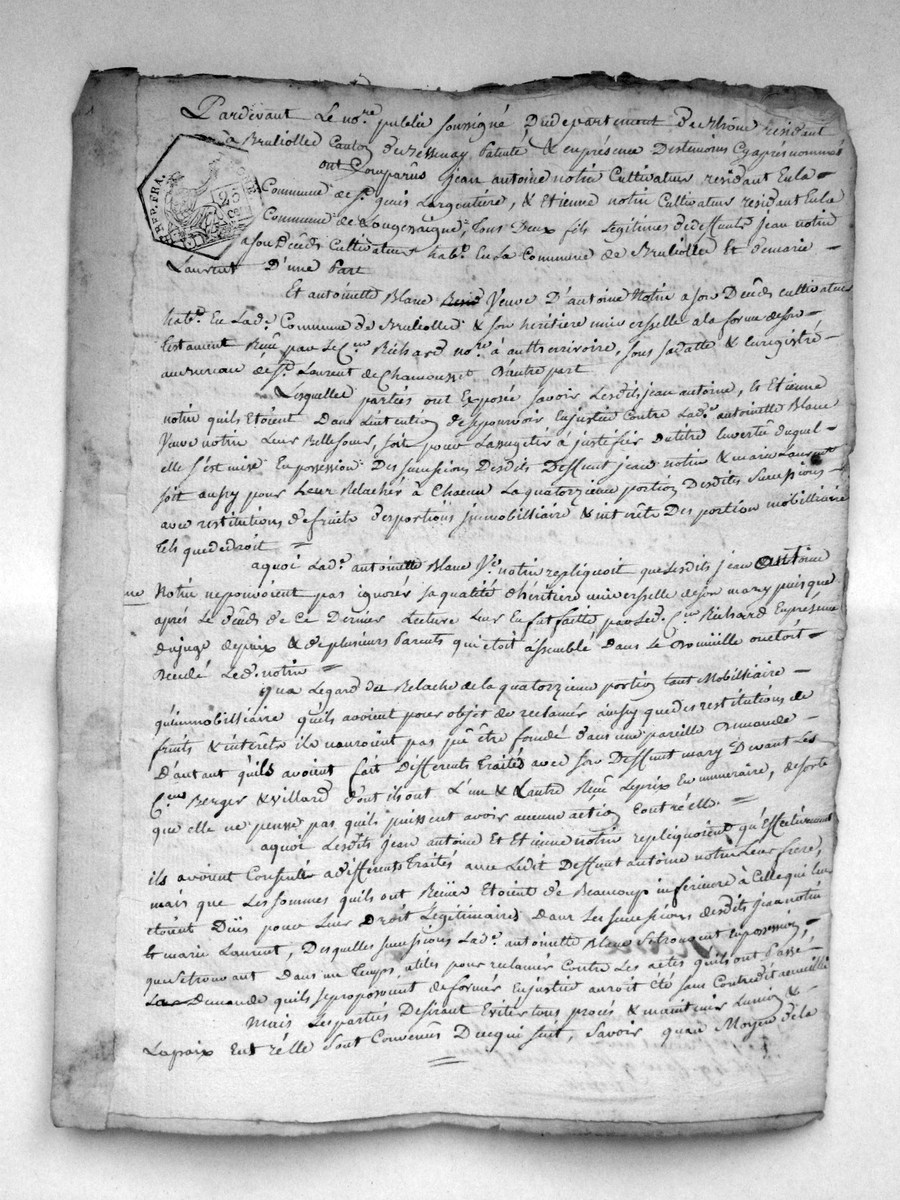 Pardevant Le no.re public soussigné Du departement du Rhône residant
a Brulliolle Canton de Bessenay Patenté & en présence Des temoins Cyaprès nommés
ont Comparus jean antoine notin Cultivateur residant En la
Commune de S.t Genis Largentiere, & Etienne notin Cultivateur residant En la
Commune de Longessaigne, Tous Deux fils Légitimes de deffunts jean notin
a son Décès Cultivateur hab.t En la Commune de Brulliolle Et de marie
Laurent D'une Part
REP. FRA.
25
Et antoinette Blanc Veuve D'antoine Notin a son Décès cultivateur
hab.t En Lad.e Commune de Brulliolle & son héritiere universelle a la forme de son
testament Reçu par Le C.en Richard no.re à , sous sa datte & Enregistré
au Bureau de S.t Laurent de Chamousset D'autre part
Lesquelles parties ont Exposée Savoir Lesdits jean antoine, & Etienne
notin quils Etoient Dans L'intention de se pourvoir En justice Contre Lad.e antoinette Blanc
Veuve notin Leur Belle Soeur, soit pour L'assugetir à justifier du titre En vertu duquel
elle s'est mise En possession Des Successions Desdits Deffunt jean notin & marie Laurent
soit aussy pour Leur Relacher à Chacun La quatorzieme portion Desdites Successions
avec restitutions de fruits des portions immobilliaire & interets Des portion mobilliaire
tels que de droit =
aquoi Lad.e antoinette Blanc V.e notin repliquoit que Lesdits jean antoine
Notin ne pouvoient pas ignorer sa qualité d'héritiere universelle de son mary puisque
après Le Décès de Ce Dernier Lecture Leur En fut faitte par Led. C.en Richard En présence
du juge de paix & de plusieurs Parents qui étoit assemblé dans Le Domicille ou étoit
Decedé Led. notin =
Qu'a L'egard du Relache de la quatorzieme portion tant Mobilliaire
qu'immobilliaire qu'ils avoient pour objet de reclamér aussy que des restitutions de
fruits & intérêts ils n'auroient pas pû être fondé dans une pareille Demande
D'autant qu'ils avoient fait Differents Traités avec son Deffunt mary Devant Les
C.en Berger & Villard dont ils ont L'un & Lautre Reçu Leprix En numeraire, de sorte
que elle ne pense pas quils puissent avoir aucune action Contre elle =
aquoi Lesdits jean antoine Et Etienne notin repliquoient qu'Effectivement
ils avoient Consenti a differents Traités avec Ledit Deffunt antoine notin Leur frere,
mais que Les sommes quils ont Reçües Etoient de Beaucoup inferieure à Celle qui Leur
étoient Dües pour Leur Droit Légitimaires dans Les Successions desdits jean notin
& marie Laurent, Desquelles Successions Lad.e antoinette Blanc se trouvent En possession,
que se trouvant dans un Temps utiles pour reclamér Contre Les actes quils ont Passé
La Demande quils se proposoient de former En justice auroit été sans Contredit accueillie
Mais Les parties Désirant Eviter tous procès & maintenir L'union &
La paix Entre elle Sont Convenües De ce qui suit, Savoir quau Moyen de la